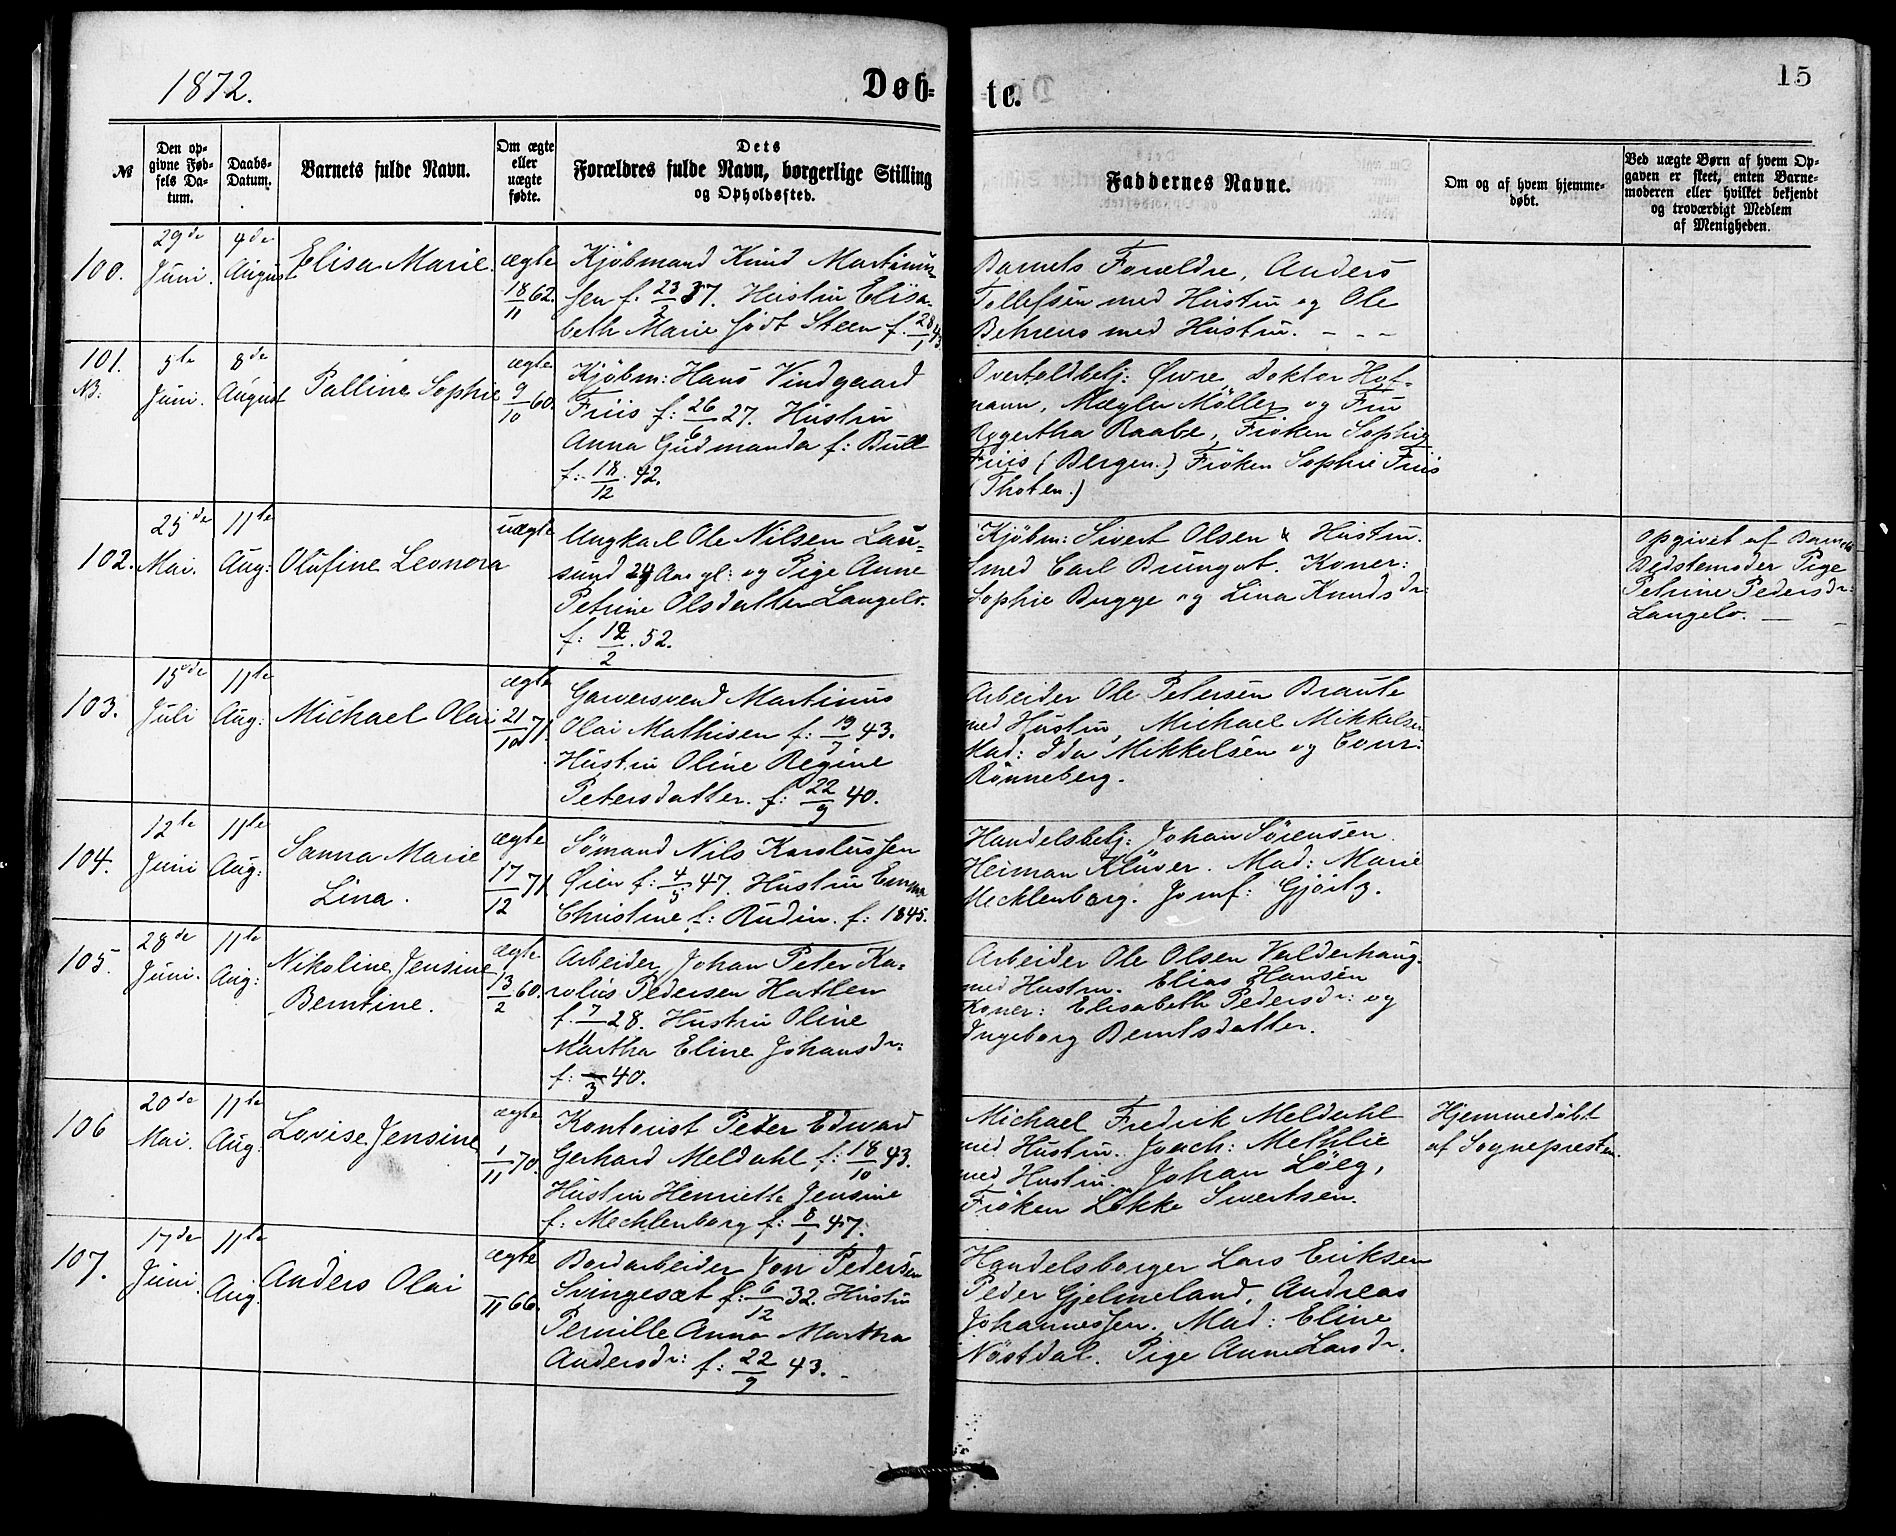 1872.
Døb-
te.
15
№
Den op-
givne Fød-
sels Da-
tum.
Daabs-
Datum.
Barnets fulde Navn.
Om ægte
eller
uægte
fødte.
Dets
Forældres fulde Navn, borgerlige Stilling
og Opholdssted.
Faddernes Navne.
Om og af hvem hjemme-
døbt.
Ved uægte Børn af hvem Op-
gaven er skeet, enten Barne-
moderen eller hvilket bekjendt
og troværdigt Medlem
af Menigheden.
100.
29de
Juni.
4de
August
Elisa Marie.
ægte
18/11 62.
Kjöbmand Knud Martinus-
sen f. 23/2 37. Hustru Elisa-
beth Marie født Steen f. 28/1 43
Barnets Forældre, Anders
Tollefsen med Hustru og Ole
Behrens med Hustru. - - -
101.
NB.
5te
Juni.
8de
August
Palline Sophie
ægte
9/10 60.
Kjøbm: Hans Vindgaard
Friis f: 26/6 27. Hustru
Anna Gudmanda f: Bull
f: 18/12. 42.
Overtoldbetj: Øwre, Doktor Hof-
mann, Mægler Möller og Fru
Raabe, Fröken Sophie
Friis (Bergen.) Fröken Sophie Friis
(Thoten.)
102.
25de
Mai.
11te
Aug:
Olufine Leonora
uægte
Ungkarl Ole Nilsen Lau-
sund 24 Aar gl: og Pige Anne
Petrine Olsdatter Langelo.
f: 12/2. 52.
Kjöbm: Sivert Olsen & Hustru.
Smed Carl Brungot. Koner:
Sophie Bugge og Lina Knudsdr:
Opgivet af Barnets
Bedstemoder Pige
Petrine Pedersdr:
Langelo. —
103.
15de
Juli
11te
Aug:
Michael Olai
ægte
21/10 71
Garversvend Martinus
Olai Mathisen f: 19/7 43.
Hustru Oline Regine
Petersdatter. f: 22/9 40.
Arbeider Ole Petersen Braute
med Hustru, Michael Mikkelsen
Mad: Ida Mikkelsen og
Rönneberg.
104.
12te
Juni
11te
Aug:
Sanna Marie
Lina.
ægte
17/12 71
Sömand Nils Karolussen
Øien f: 4/5 47. Hustru Emma
Christine f: Rudin. f: 1845.
Handelsbetj: Johan Sörensen
Heiman Klüver. Mad: Marie
Mecklenborg. Jomf: Gjörtz.
105.
28de
Juni.
11te
Aug:
Nikoline Jensine
Berntine.
ægte
13/2 60.
Arbeider Johan Peter Ka-
rolus Pedersen Hatlen
f. 7/11 28. Hustru Oline
Martha Eline Johansdr:
f: —/3 40.
Arbeider Ole Olsen Valderhaug
med Hustru. Elias Hansen
Koner: Elisabeth Pedersdr: og
Ingeborg Berntsdatter.
106
20de
Mai.
11te
Aug:
Lovise Jensine
ægte
1/11 70.
Kontorist Peter Edward
Gerhard Meldahl f: 18/10 43.
Hustru Henriette Jensine
f: Mechlenborg f: 8/1 47.
Michael Fredrik Meldahl
med Hustru. Joach: Methlie
med Hustru. Johan Löeg,
Fröken Lökke Sivertsen.
Hjemmedöbt
af Sognepresten.
107.
17de
Juni.
11te
Aug:
Anders Olai
ægte
/11 66.
Bordarbeider Jon Pedersen
Svingesæt f: 6/12 32. Hustru
Pernille Anna Martha
Andersdr: f: 22/9 43. -
Handelsborger Lars Eriksen
Peder Gjelmeland, Andreas
Johannessen. Mad: Eline
Nöstdal. Pige Anne Larsdr.